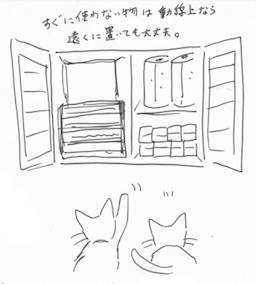 すぐに使わない物は動線上なら
遠くに置いても大丈夫。